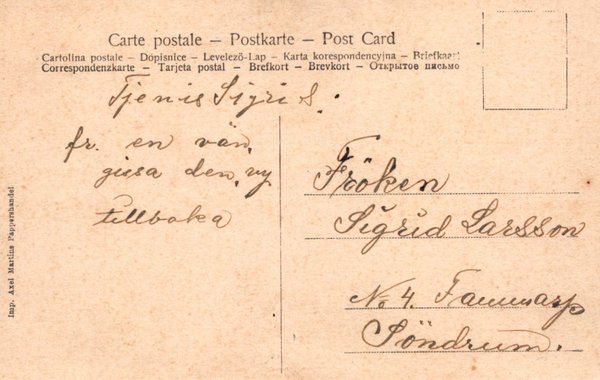 Carte postale – Postkarte – Post Card
Cartolina postale – Dopisnice – Levelező-Lap – Karta korespondencyjna – Briefkaart
Correspondenzkarte – Tarjeta postal – Brefkort – Brevkort – Открытое письмо
Tjenis Sigrid.
fr. en vän,
gissa den, vy
tillbaka
Fröken
Sigrid Larsson
No 4. Fammarp
Söndrum.
Imp. Axel Martins Pappershandel